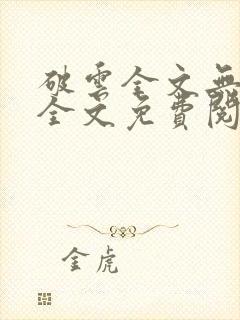 破雲全文無
全文免費閱
金虎